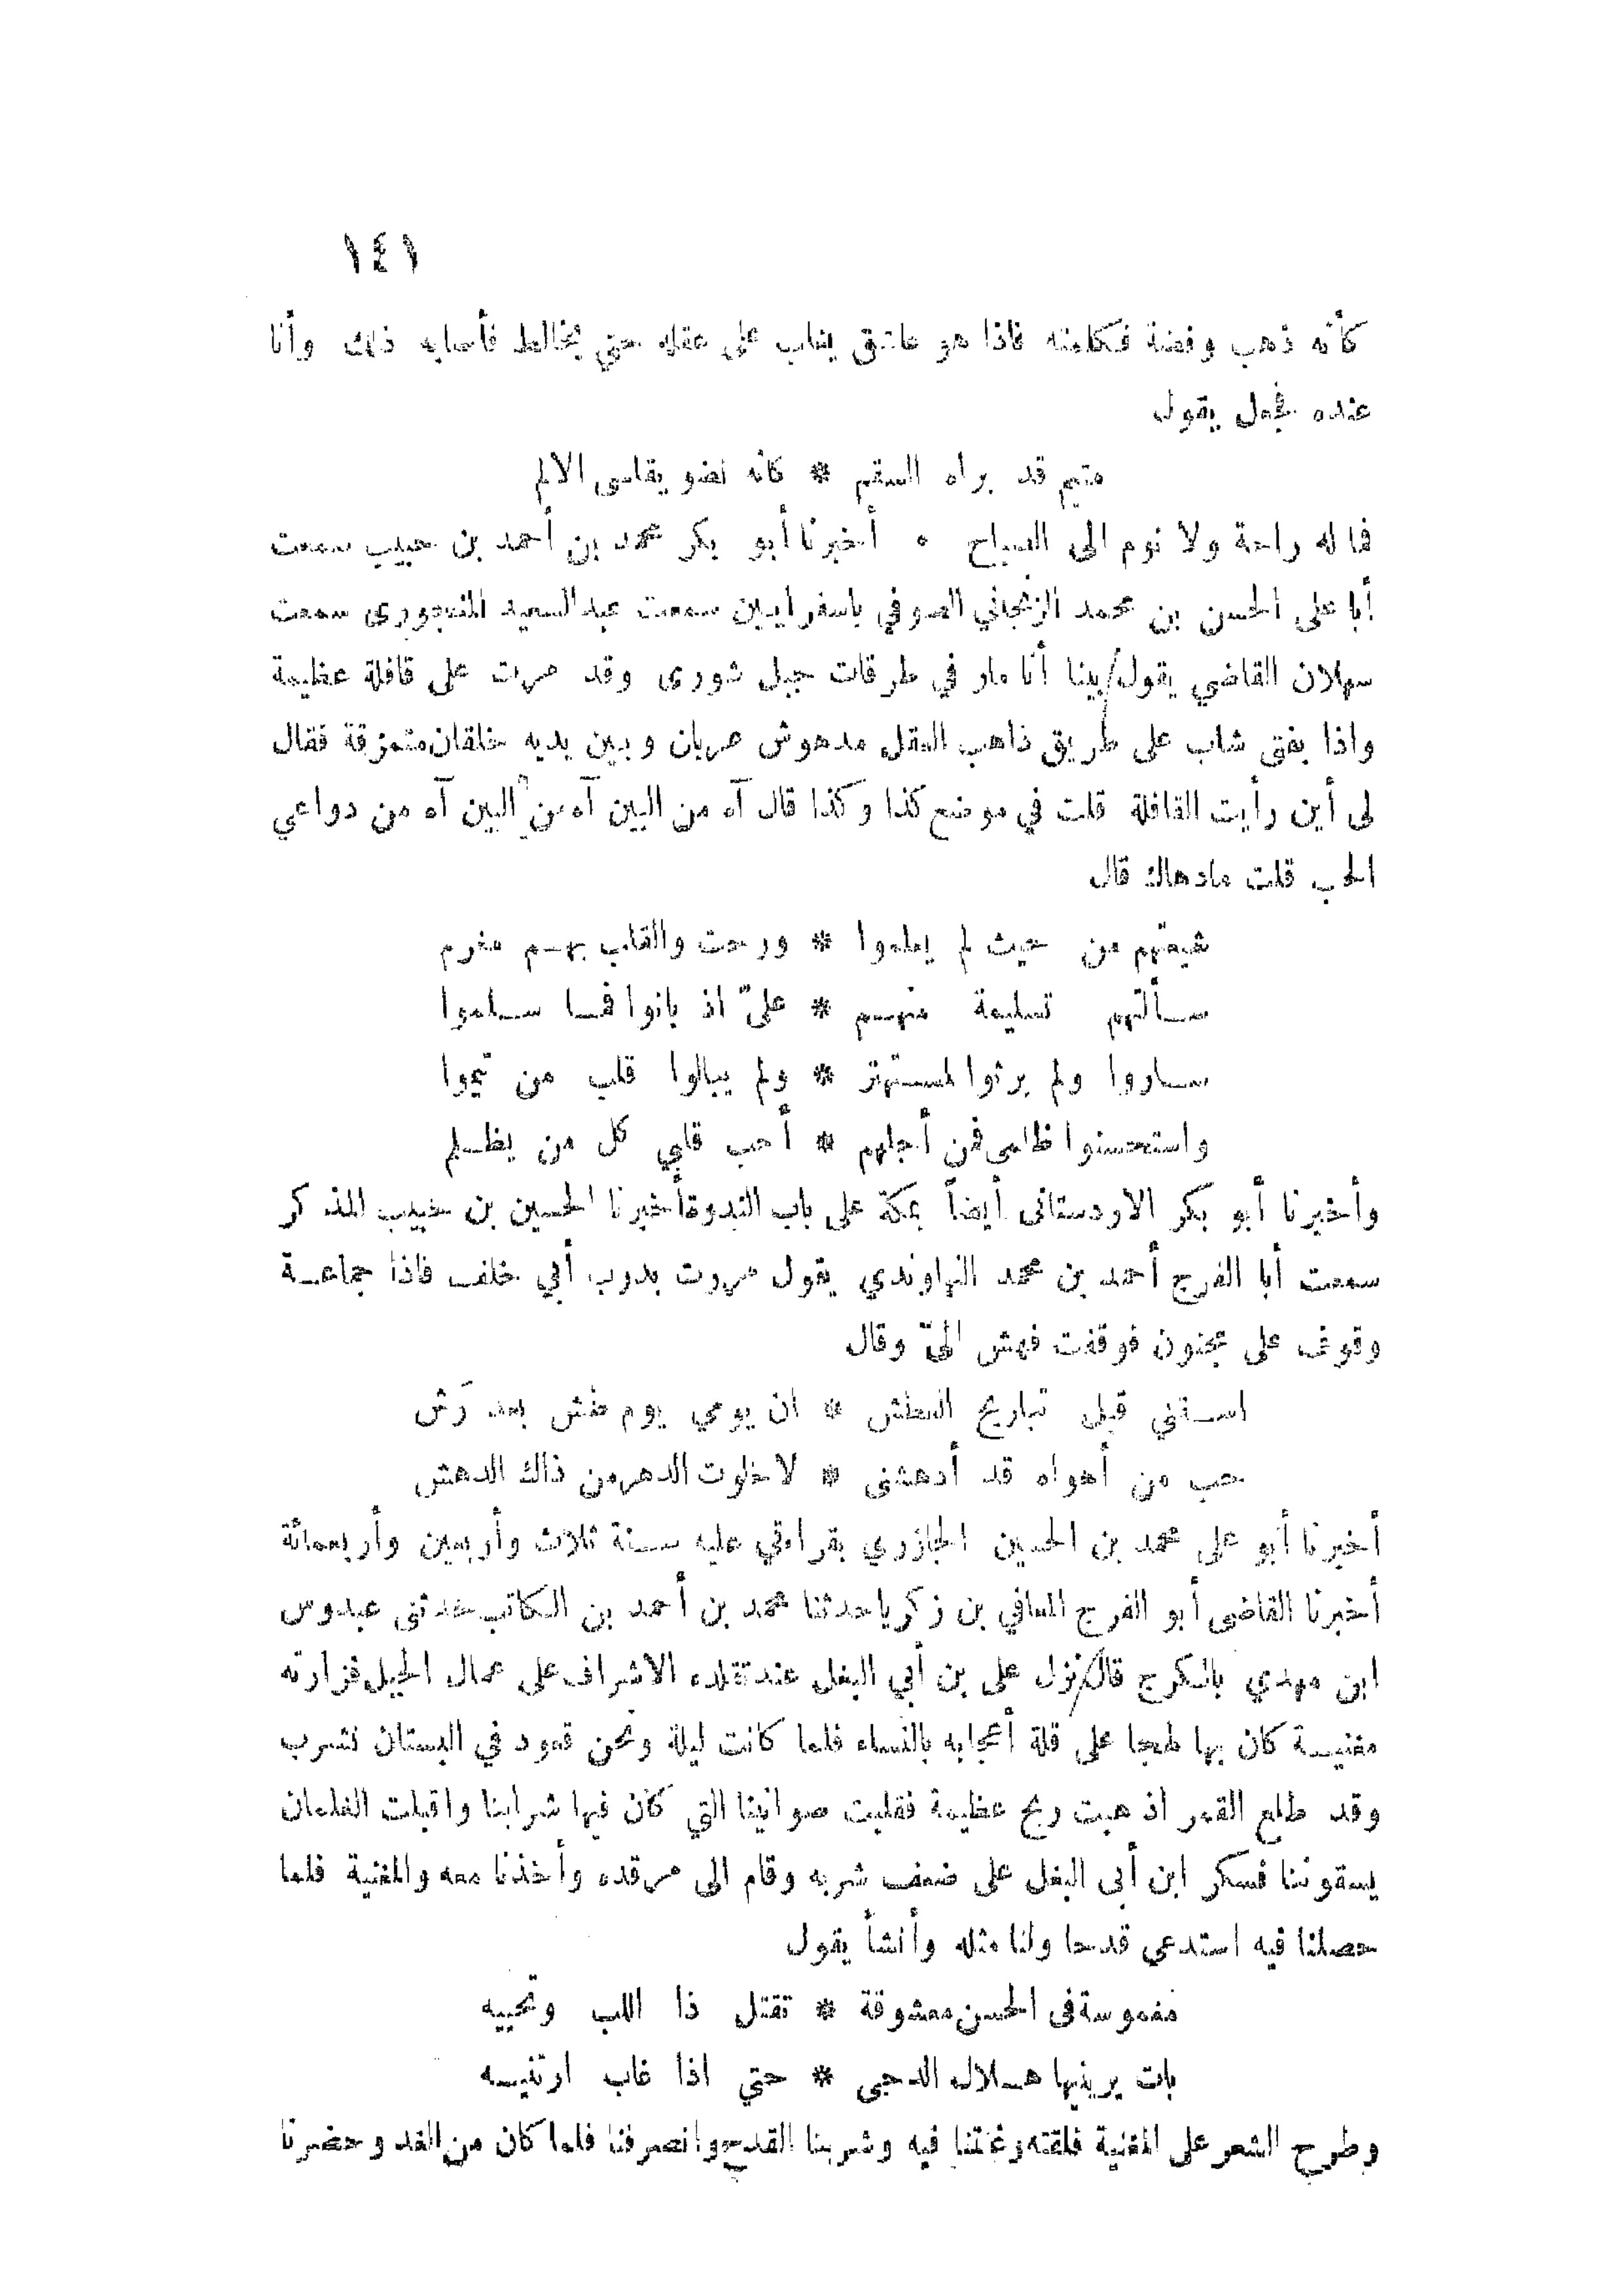 ١٤١
كأنه ذهب وفضة فكلمته فاذا هو عاشق يغاب على عقله حتى يخالط فأصابه ذلك وأنا
عنده فجعل يقول
متيم قد براه السقم * كانه نضو يقاسى الالم
فما له راحة ولا نوم الى الصباح ٥ أخبرنا أبو بكر محمد بن أحمد بن حبيب سمعت
أبا على الحسن بن محمد الزنجاني الصوفي باسفرايين سمعت عبد السعيد سمعت
سهلان القاضي يقول بينا أنا مار في طرقات جبل شورى وقد مررت على قافلة عظيمة
واذا بفتى شاب على طريق ذاهب العقل مدهوش عريان وبين يديه خلقان متمزقة فقال
لى أين رأيت القافلة قلت في موضع كذا وكذا قال آه من البين آه من البين آه من دواعي
الحب قلت مادهاك قال
شيعتهم من حيث لم يعلموا * ورحت والقلب بهم مغرم
سألتهم تسليمة منهم * عليّ اذ بانوا فما سلموا
ساروا ولم يرثوا لمستهتر * ولم يبالوا قلب من تيموا
واستحسنوا ظلمى فمن أجلهم * أحب قلبي كل من يظلم
وأخبرنا أبو بكر الاردستانى أيضاً بمكة على باب الندوة أخبرنا الحسين بن حبيب المذكر
سمعت أبا الفرج أحمد بن محمد النهاوندي يقول مررت بدرب أبي خلف فاذا جماعة
وقوف على مجنون فوقفت فهش اليّ وقال
اسقني قبل تباريح العطش * ان يومي يوم طش بعد رَش
حب من أهواه قد أدهشنى * لا خلوت الدهر من ذاك الدهش
أخبرنا أبو على محمد بن الحسين الجازري بقراءتي عليه سنة ثلاث وأربعين وأربعمائة
أخبرنا القاضى أبو الفرج المعافي بن زكريا حدثنا محمد بن أحمد بن الكاتب حدثنى عبدوس
ابن مهدي بالكرج قال نزل على بن أبي البغل عند تقلده الاشراف على عمال الجبل فزارته
مغنية كان بها طمعا على قلة أعجابه بالنساء فلما كانت ليلة ونحن قعود في البستان نشرب
وقد طلع القمر اذ هبت ريح عظيمة فقلبت صوانينا التي كان فيها شرابنا واقبلت الغلمان
يسقوننا فسكر ابن أبى البغل على ضعف شربه وقام الى مرقده وأخذنا معه والمغنية فلما
حصلنا فيه استدعى قدحا ولنا مثله وأنشأ يقول
مغموسة فى الحسن معشوقة * تقتل ذا اللب وتحييه
بات يرينيها هلال الدجى * حتي اذا غاب ارتنيه
وطرح الشعر على المغنية فلقنته وغنتنا فيه وشربنا القدح وانصرفنا فلما كان من الغد وحضرنا